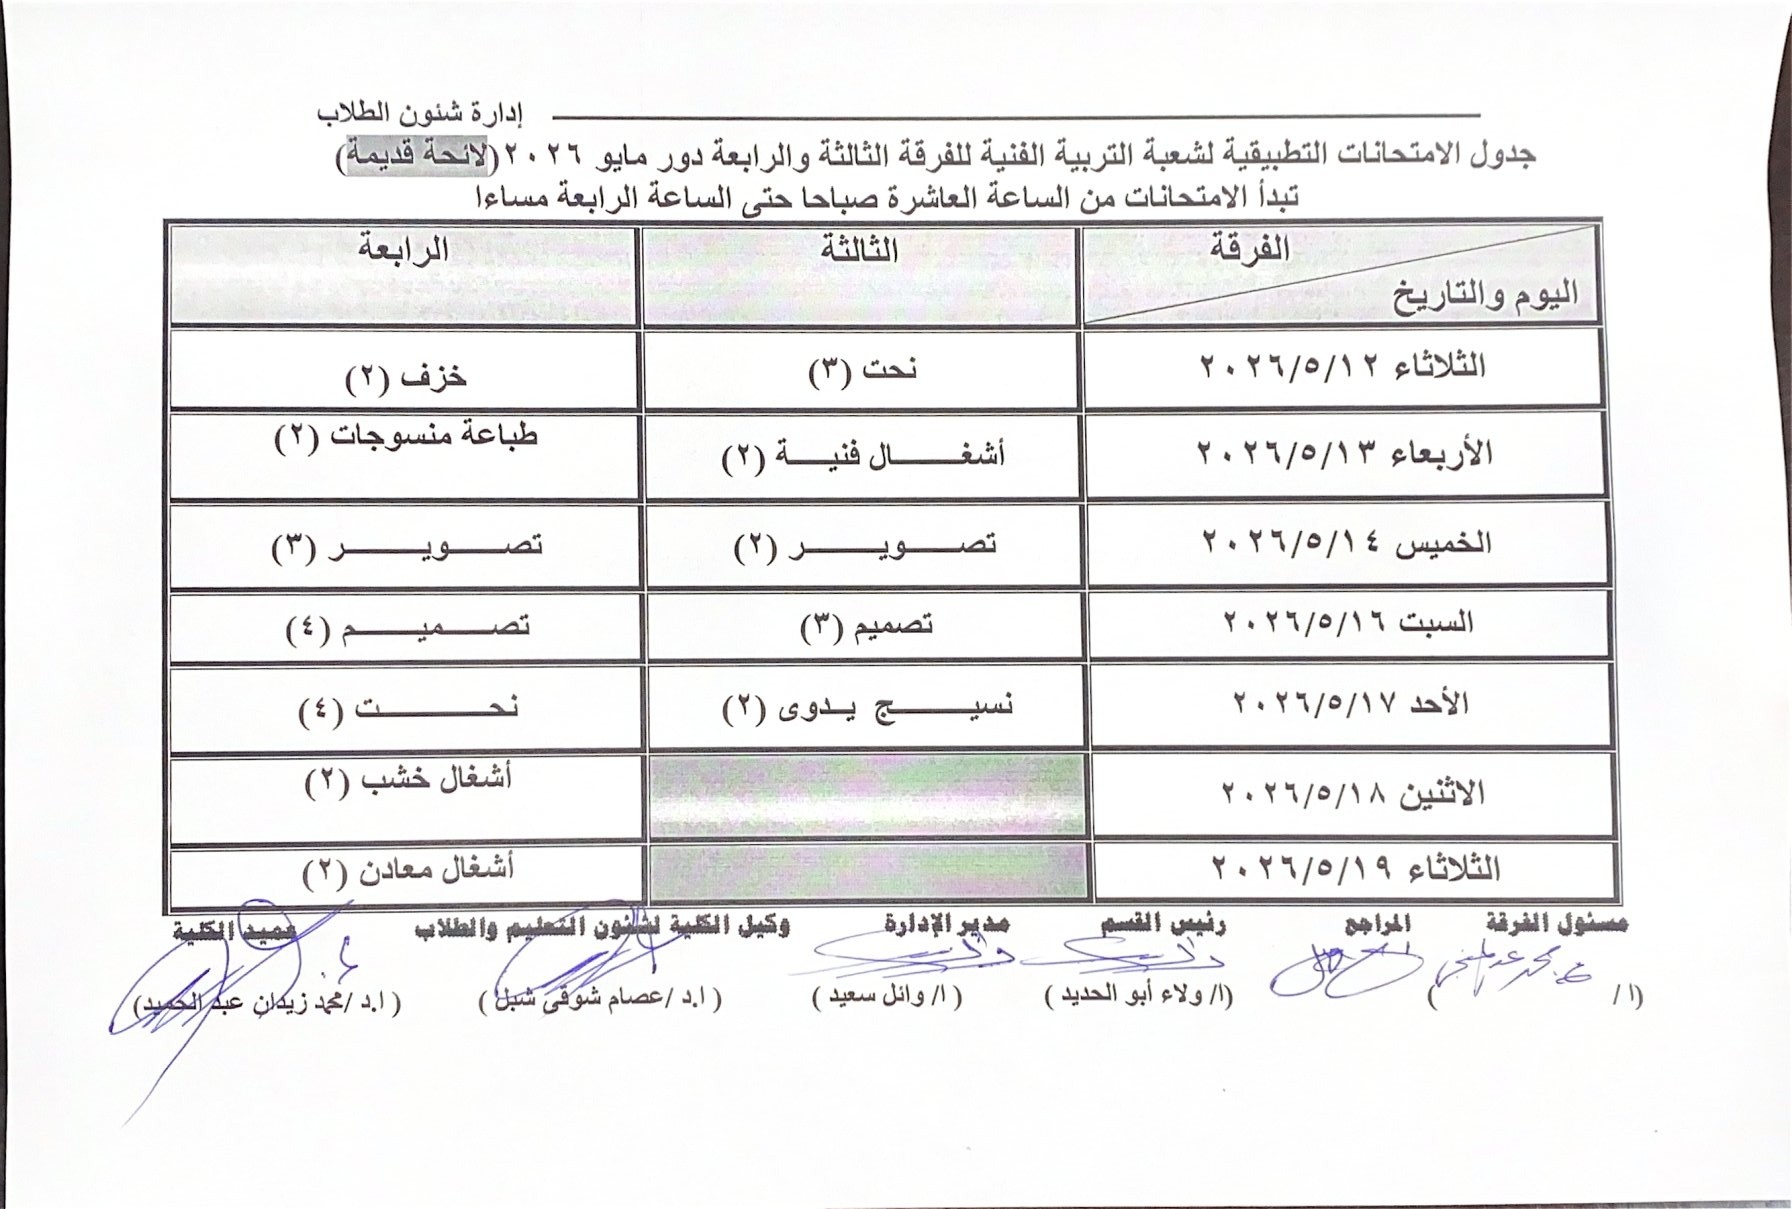 إدارة شئون الطلاب
جدول الامتحانات التطبيقية لشعبة التربية الفنية للفرقة الثالثة والرابعة دور مايو ٢٠٢٦ (لائحة قديمة)
تبدأ الامتحانات من الساعة العاشرة صباحا حتى الساعة الرابعة مساءا
الفرقة الثالثة الرابعة
اليوم والتاريخ
الثلاثاء ٢٠٢٦/٥/١٢ نحت (٣) خزف (٢)
الأربعاء ٢٠٢٦/٥/١٣ أشغـــــال فنيـــة (٢) طباعة منسوجات (٢)
الخميس ٢٠٢٦/٥/١٤ تصـــويـــــر (٢) تصـــويـــــر (٣)
السبت ٢٠٢٦/٥/١٦ تصميم (٣) تصـــميـــــم (٤)
الأحد ٢٠٢٦/٥/١٧ نسيـــــج يـدوى (٢) نحـــــــــت (٤)
الاثنين ٢٠٢٦/٥/١٨ أشغال خشب (٢)
الثلاثاء ٢٠٢٦/٥/١٩ أشغال معادن (٢)
مسئول الفرقة المراجع رئيس القسم مدير الإدارة وكيل الكلية لشئون التعليم والطلاب عميد الكلية
(ا/ ) (ا/ ولاء أبو الحديد) (ا/ وائل سعيد) (ا.د /عصام شوقى شبل) (ا.د /محمد زيدان عبد الحميد)